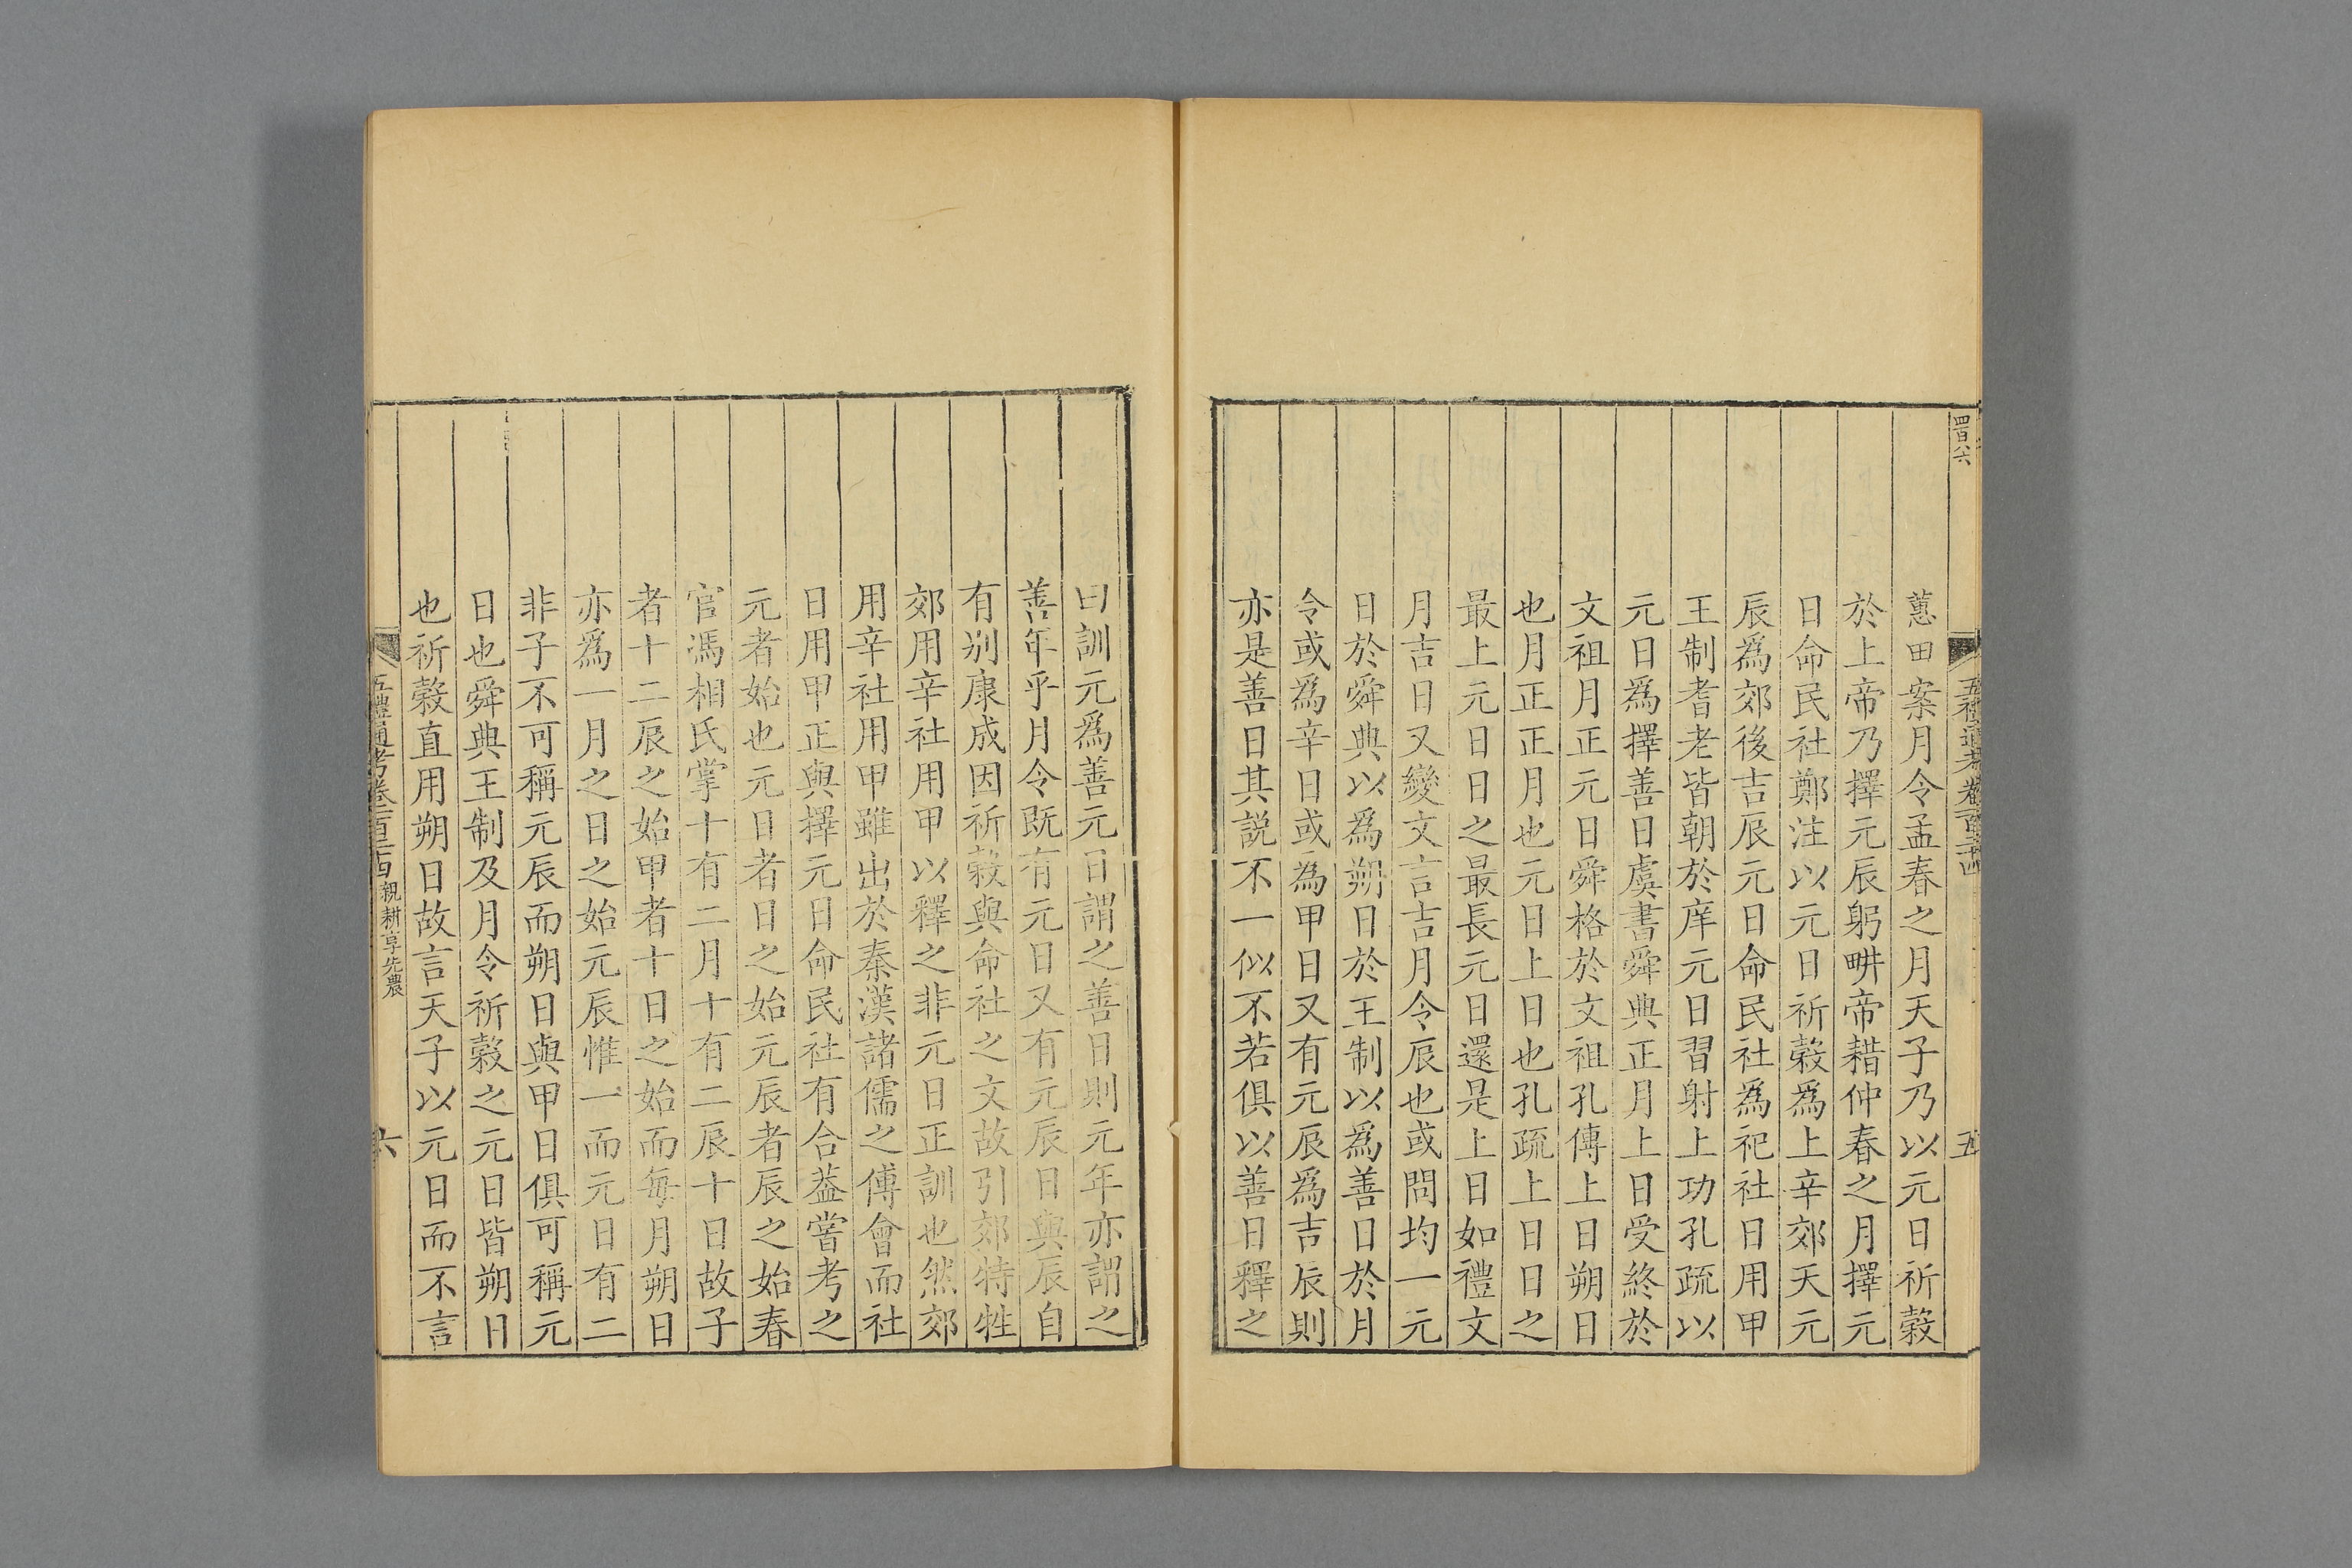 四百八六
五禮通考卷一百二十四
五
蕙田案月令孟春之月天子乃以元日祈穀
於上帝乃擇元辰躬畊帝耤仲春之月擇元
日命民社鄭注以元日祈穀爲上辛郊天元
辰爲郊後吉辰元日命民社爲祀社日用甲
王制耆老皆朝於庠元日習射上功孔疏以
元日爲擇善日虞書舜典正月上日受終於
文祖月正元日舜格於文祖孔傳上日朔日
也月正正月也元日上日也孔疏上日日之
最上元日日之最長元日還是上日如禮文
月吉日又變文言吉月令辰也或問均一元
日於舜典以爲朔日於王制以爲善日於月
令或爲辛日或爲甲日又有元辰爲吉辰則
亦是善日其説不一似不若俱以善日釋之
曰訓元爲善元日謂之善日則元年亦謂之
善年乎月令既有元日又有元辰日與辰自
有别康成因祈穀與命社之文故引郊特牲
郊用辛社用甲以釋之非元日正訓也然郊
用辛社用甲雖出於秦漢諸儒之傅會而社
日用甲正與擇元日命民社有合葢嘗考之
元者始也元日者日之始元辰者辰之始春
官馮相氏掌十有二月十有二辰十日故子
者十二辰之始甲者十日之始而每月朔日
亦爲一月之日之始元辰惟一而元日有二
非子不可稱元辰而朔日與甲日俱可稱元
日也舜典王制及月令祈穀之元日皆朔日
也祈穀直用朔日故言天子以元日而不言
五禮通考卷一百二十四 親耕享先農
六